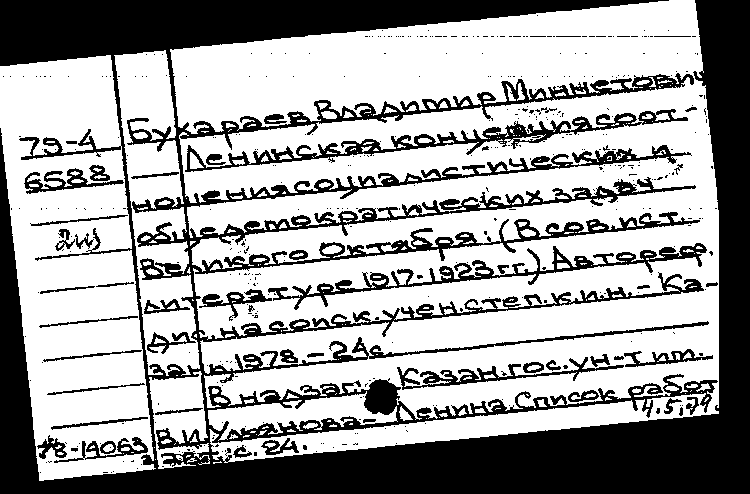 Бухараев, Владимир Миннетович
79-4
6588
Ленинская концепция соот-
ношения социалистических и
общедемократических задач
Великого Октября: (В сов. ист.
литературе 1917-1923 гг.). Автореф.
дис. на соиск. учен. степ. к.и.н. - Ка-
зань, 1978. - 24с.
В надзаг.: Казан. гос. ун-т им.
В.И. Ульянова-Ленина. Список работ
авт.: с. 24.
4.5.79.
78-14063